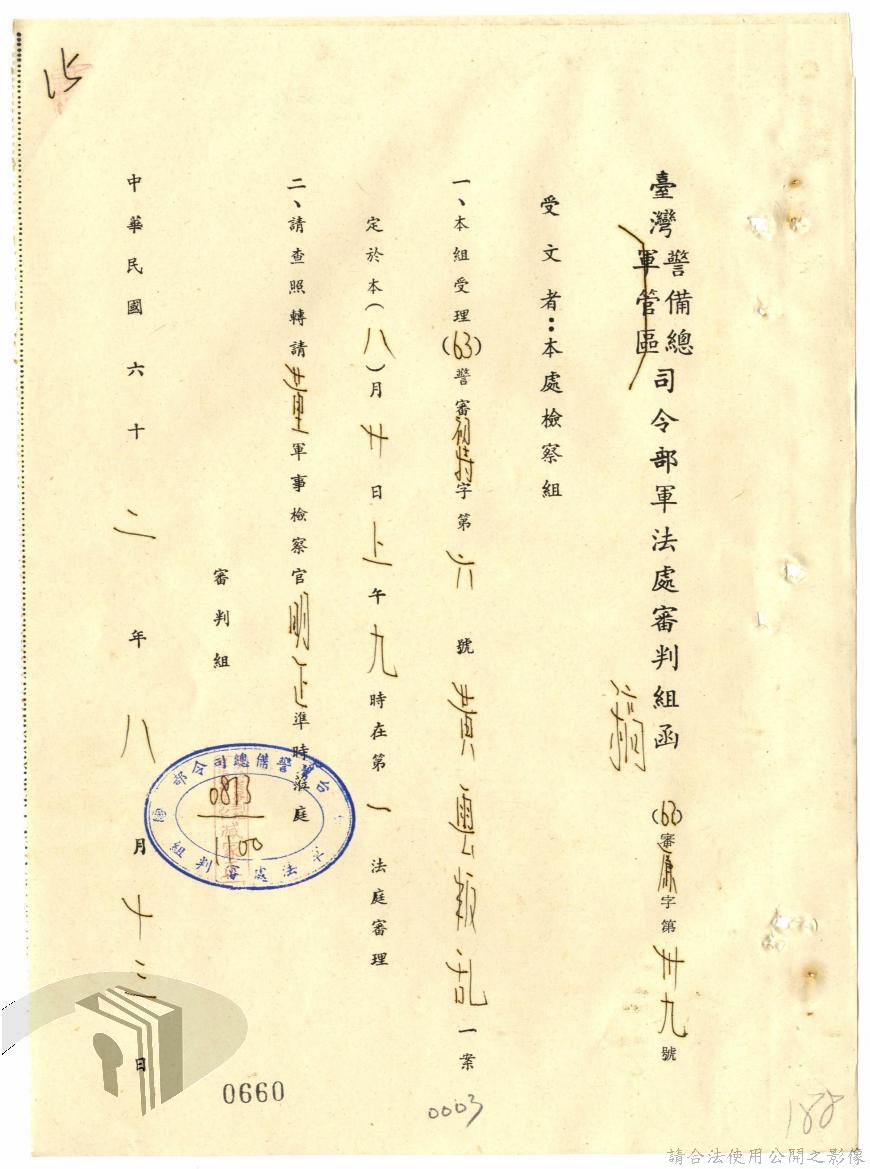 臺灣警備總軍管區司令部軍法處審判組函
稿
(63)審康字第卅九號
受文者：本處檢察組
一、本組受理(63)警審初特字第六號黃雲叛乱一案
定於本(八)月廿日上午九時在第一法庭審理
二、請查照轉請董軍事檢察官明正準時蒞庭
審判組
台灣警備總司令部
軍法處審判組
0813
1100
中華民國六十三年八月十三日
15
0660
0003
188
請合法使用公開之影像